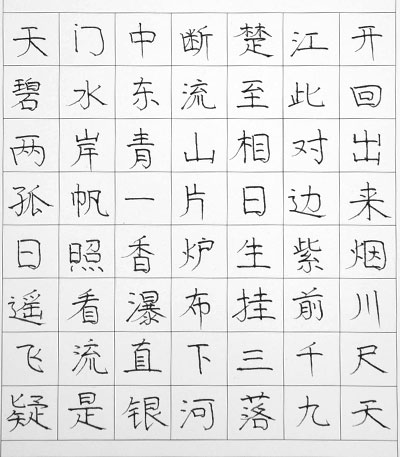 天门中断楚江开
碧水东流至此回
两岸青山相对出
孤帆一片日边来
日照香炉生紫烟
遥看瀑布挂前川
飞流直下三千尺
疑是银河落九天